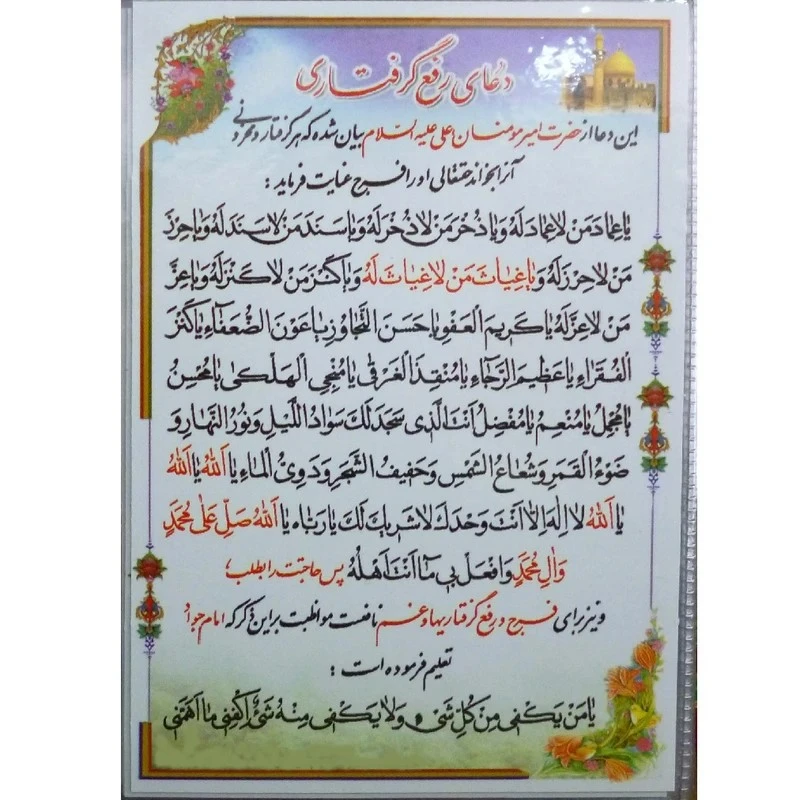 دعای رفع گرفتاری
این دعا از حضرت امیر مومنان علی علیه السلام بیان شده که هر گرفتار و محزونی
آنرا بخواند حقتعالی او را فرج عنایت فرماید :
یٰا عِمٰادَ مَنْ لاٰ عِمٰادَ لَهُ وَ یٰا ذُخْرَ مَنْ لاٰ ذُخْرَ لَهُ وَ یٰا سَنَدَ مَنْ لاٰ سَنَدَ لَهُ وَ یٰا حِرْزَ
مَنْ لاٰ حِرْزَ لَهُ وَ یٰا غِیٰاثَ مَنْ لاٰ غِیٰاثَ لَهُ وَ یٰا کَنْزَ مَنْ لاٰ کَنْزَ لَهُ وَ یٰا عِزَّ
مَنْ لاٰ عِزَّ لَهُ یٰا کَرِیمَ الْعَفْوِ یٰا حَسَنَ التَّجٰاوُزِ یٰا عَوْنَ الضُّعَفٰاءِ یٰا کَنْزَ
الْفُقَرٰاءِ یٰا عَظِیمَ الرَّجٰاءِ یٰا مُنْقِذَ الْغَرْقیٰ یٰا مُنْجِیَ الْهَلْکیٰ یٰا مُحْسِنُ
یٰا مُجْمِلُ یٰا مُنْعِمُ یٰا مُفْضِلُ اَنْتَ الَّذی سَجَدَ لَکَ سَوٰادُ اللَّیْلِ وَ نُورُ النَّهٰارِ وَ
ضَوْءُ الْقَمَرِ وَ شُعٰاعُ الشَّمْسِ وَ حَفِیفُ الشَّجَرِ وَ دَوِیُّ الْمٰاءِ یٰا اَللّٰهُ یٰا اَللّٰهُ
یٰا اَللّٰهُ لاٰ اِلٰهَ اِلاّٰ اَنْتَ وَحْدَکَ لاٰ شَرِیکَ لَکَ یٰا رَبّٰاه یٰا اَللّٰهُ صَلِّ عَلیٰ مُحَمَّدٍ
وَ اٰلِ مُحَمَّدٍ وَ افْعَلْ بِی مٰا اَنْتَ اَهْلُهُ پس حاجتت را بطلب؛
و نیز برای فرج و رفع گرفتاریها و غم نافعست مواظبت بر این ذکر که امام جواد
تعلیم فرموده است :
یٰا مَنْ یَکْفی مِنْ کُلِّ شَیْ‌ءٍ وَ لاٰ یَکْفی مِنْهُ شَیْ‌ءٌ اِکْفِنی مٰا اَهَمَّنی